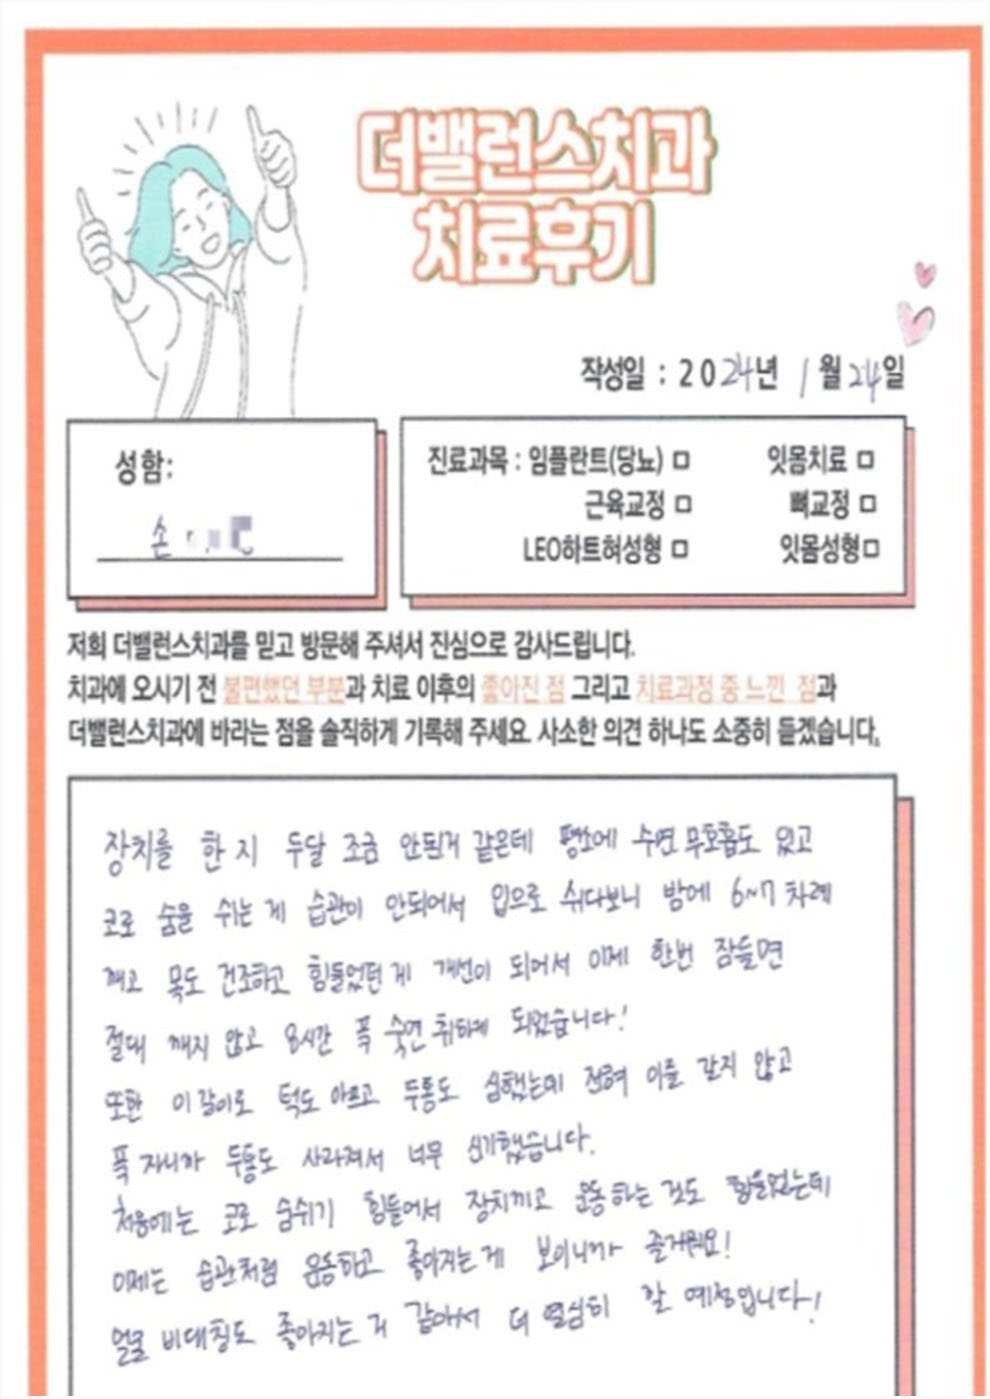 더밸런스치과
치료후기
작성일 : 2024년 1월 24일
성함:
손
진료과목 : 임플란트(당뇨) □ 잇몸치료 □
근육교정 □ 뼈교정 □
LEO하트혀성형 □ 잇몸성형□
저희 더밸런스치과를 믿고 방문해 주셔서 진심으로 감사드립니다.
치과에 오시기 전 불편했던 부분과 치료 이후의 좋아진 점 그리고 치료과정 중 느낀 점과
더밸런스치과에 바라는 점을 솔직하게 기록해 주세요. 사소한 의견 하나도 소중히 듣겠습니다.
장치를 한 지 두달 조금 안된거 같은데 평소에 수면 무호흡도 있고
코로 숨을 쉬는 게 습관이 안되어서 입으로 쉬다보니 밤에 6~7 차례
깨고 목도 건조하고 힘들었던 게 개선이 되어서 이제 한번 잠들면
절대 깨지 않고 8시간 푹 숙면 취하게 되었습니다!
또한 이갈이로 턱도 아프고 두통도 심했는데 전혀 이를 갈지 않고
푹 자니까 두통도 사라져서 너무 신기했습니다.
처음에는 코로 숨쉬기 힘들어서 장치끼고 운동하는 것도 힘들었는데
이제는 습관처럼 운동하고 좋아지는게 보이니까 즐거워요!
얼굴 비대칭도 좋아지는 거 같아서 더 열심히 할 예정입니다!